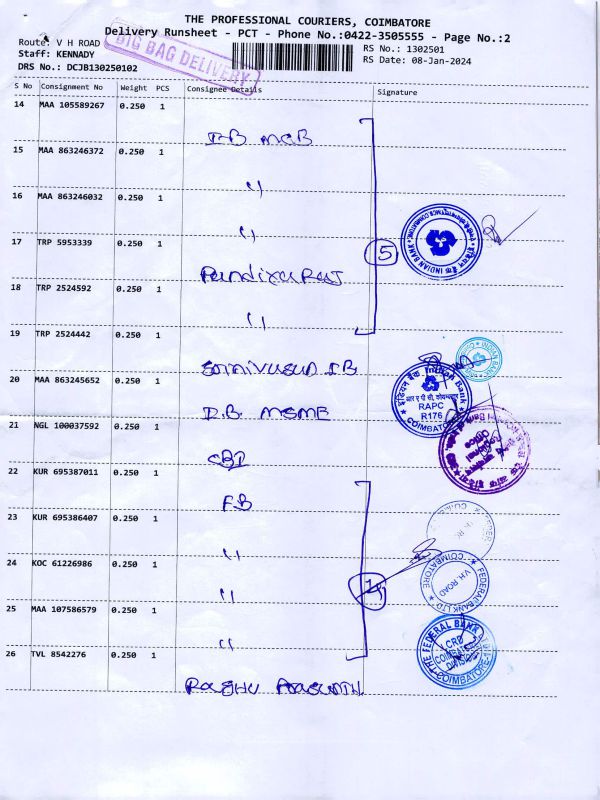 THE PROFESSIONAL COURIERS, COIMBATORE
Delivery Runsheet - PCT - Phone No.:0422-3505555 - Page No.:2
Route: V H ROAD
RS No.: 1302501
Staff: KENNADY
RS Date: 08-Jan-2024
DRS No.: DCJB130250102
BIG BAG DELIVERY
S No Consignment No Weight PCS Consignee Details Signature
14 MAA 105589267 0.250 1
15 MAA 863246372 0.250 1
16 MAA 863246032 0.250 1
17 TRP 5953339 0.250 1
5
INDIAN BANK
18 TRP 2524592 0.250 1
19 TRP 2524442 0.250 1
Srinivasan IB
20 MAA 863245652 0.250 1
I.B. MSME
Indian Bank
RAPC
R176
COIMBATORE
21 NGL 100037592 0.250 1
CBI
22 KUR 695387011 0.250 1
FB
23 KUR 695386407 0.250 1
24 KOC 61226986 0.250 1
FEDERAL BANK LTD
V.H. ROAD
COIMBATORE
25 MAA 107586579 0.250 1
THE FEDERAL BANK
CRD
COIMBATORE
DIVISION
26 TVL 8542276 0.250 1